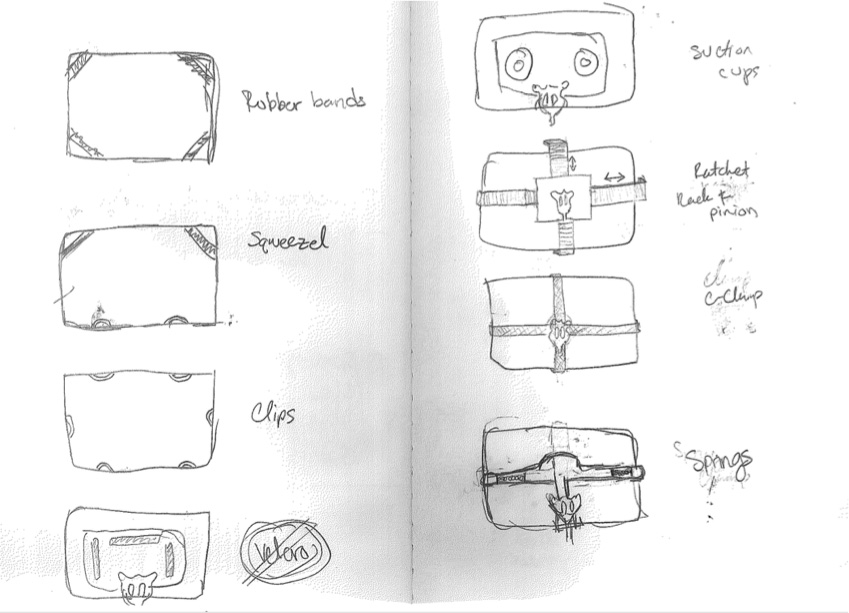 Rubber bands
Squeezel
Clips
Velcro
Suction
cups
Ratchet
Rack &
pinion
C-Clamp
Springs